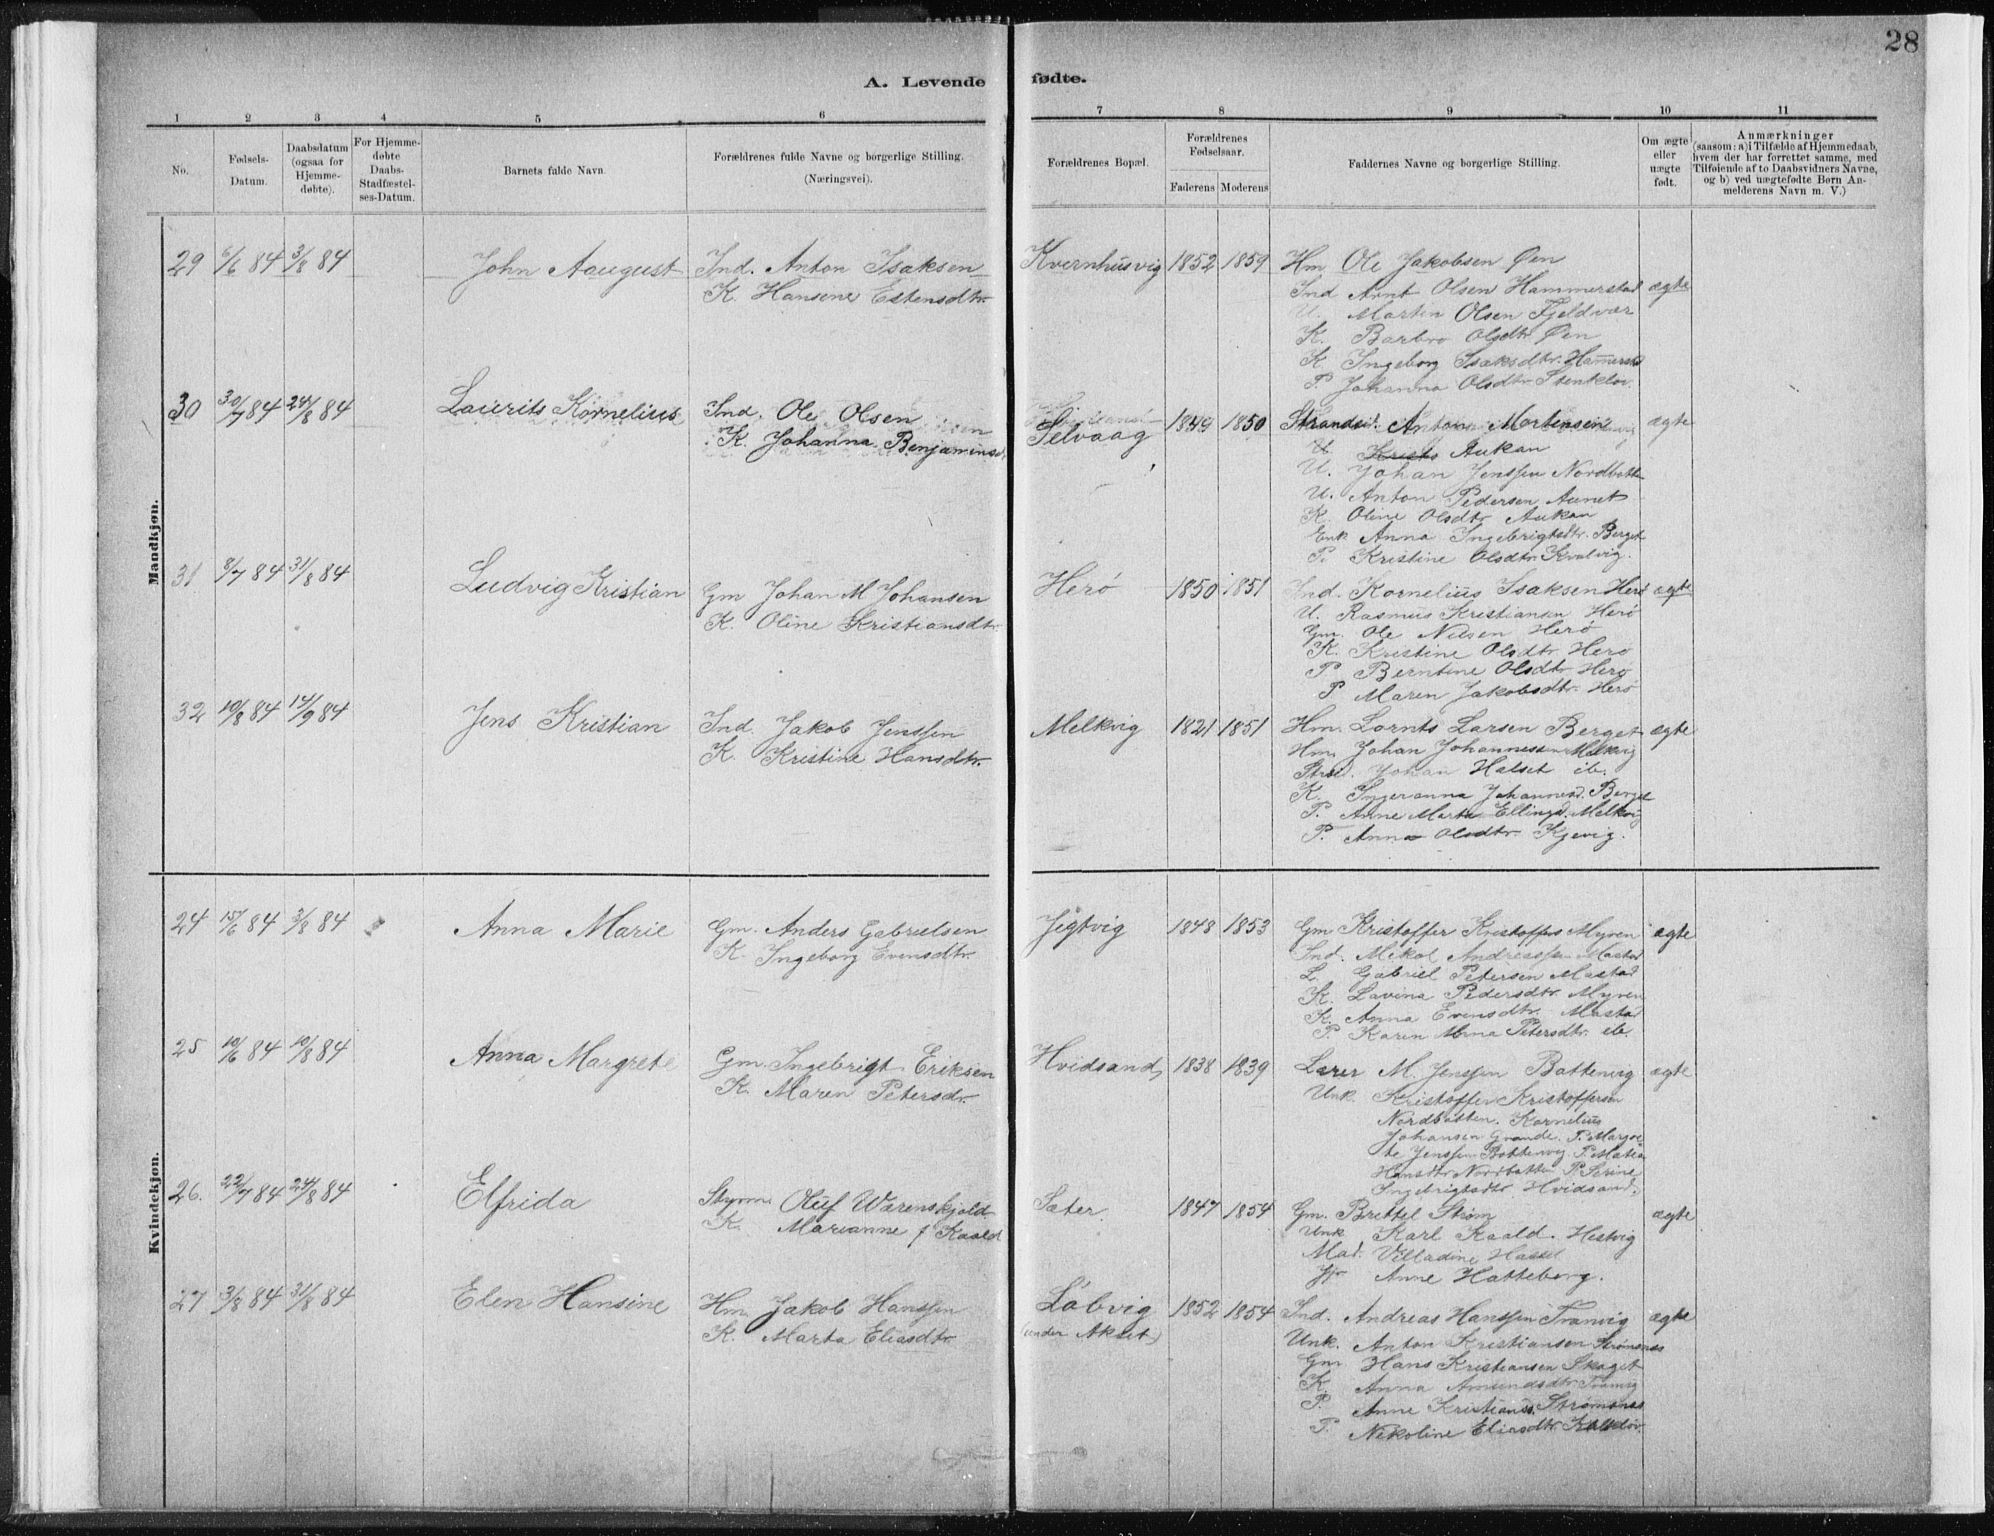 28
A. Levende fødte.
1 2 3 4 5 6 7 8 9 10 11
No.
Fødsels-
Datum.
Daabsdatum
(ogsaa for
Hjemme-
døbte).
For Hjemme-
døbte
Daabs-
Stadfæstel-
ses-Datum.
Barnets fulde Navn.
Forældrenes fulde Navne og borgerlige Stilling.
(Næringsvei).
Forældrenes Bopæl.
Forældrenes
Fødselsaar.
Faderens Moderens
Faddernes Navne og borgerlige Stilling.
Om ægte
eller
uægte
født.
Anmærkninger
(saasom: a) i Tilfælde af Hjemmedaab,
hvem der har forrettet samme, med
Tilføiende af to Daabsvidners Navne,
og b) ved uægtefødte Børn An-
melderens Navn m. V.)
Mandkjøn.
29 6/6 84 3/8 84 John Aaugust Ind. Anton Isaksen Kvernhusvig 1852 1859 Hm Ole Jakobsen Øen
K. Hansine Estensdtr. Ind Arnt Olsen Hammerstad ægte
U. Marten Olsen Fjeldvær
K. Barbro Olsdtr Øen
K Ingeborg Isaksdtr. Hammerstd
P. Johanna Olsdtr Stenklov.
30 30/7 84 24/8 84 Laurits Kornelius Ind. Ole Olsen Selvaag 1849 1850 Strandsid. Anton Mortensen ægte
K. Johanna Benjaminsd. Aukan
U. Johan Jenssen Nordbotn
U. Anton Pedersen Aunet
K. Oline Olsdtr Aukan
Enk Anna Ingebrigtsdtr. Berget
P. Kristine Olsdtr Kvalvig.
31 8/7 84 31/8 84 Ludvig Kristian Gm Johan M Johansen Herö 1850 1851 Ind. Kornelius Isaksen Herö ægte
K. Oline Kristiansdtr. U. Rasmus Kristiansen Herö
Gm. Ole Nilsen Herö
K. Kristine Olsdtr Herö
P Berntine Olsdtr Herö
P Maren Jakobsdtr. Herö
32 10/8 84 14/9 84 Jens Kristian Ind. Jakob Jenssen Melkvig 1821 1851 Hm. Lornts Larsen Berget ægte
K. Kristine Hansdtr. Hm. Johan Johannessen Melkvig
Johan Halset ib.
K. Ingeranna Johannesd. Berget
P. Anne Marta Ellingsd. Melkvig
P. Anna Olsdtr. Kjevig.
Kvindekjøn.
24 15/6 84 3/8 84 Anna Marie Gm. Anders Gabrielsen Jegtvig 1848 1853 Gm Kristoffer Kristoffers Myren ægte
K. Ingeborg Evensdtr. Ind. Mikal Andreassen Mastad
L. Gabriel Petersen Mastad
K. Lavina Pedersdtr. Myren
K. Anna Evensdtr. Mastad
P. Karen Anna Petersdtr. ib.
25 10/6 84 10/8 84 Anna Margrete Gm. Ingebrigt Eriksen Hvidsand, 1838 1839 Lærer M. Jenssen Bottenvig ægte
K. Maren Petersdr. Unk. Kristoffer Kristoffersen
Nordbotten. Kornelius
Johansen Grande. P. Margre
te Jenssen Bottenvig. P. Matia
Hansdtr Nordbotten P. Serine
Ingebrigtsdtr. Hvidsand.
26. 22/7 84 24/8 84 Elfrida Styrm. Oluf Wærenskjold Sæter. 1847 1854 Gm. Brettel Strøm ægte
K. Marianne f Kaald Unk Karl Kaald. Hestvig
Mad. Villadine Hassel
Jfr Anne Hatteberg.
27 3/8 84 31/8 84 Elen Hansine Hm Jakob Hanssen Löbvig 1852 1854 Ind. Andreas Hanssen Tranvig ægte
K. Marta Eliasdtr. (under Akset) Unk. Anton Kristiansen Strømsnes
Gm Hans Kristiansen Skaget
K. Anna Amundsdtr Tranvig
P. Anne Kristians. Strømsnes
P. Nikoline Eliasdtr.